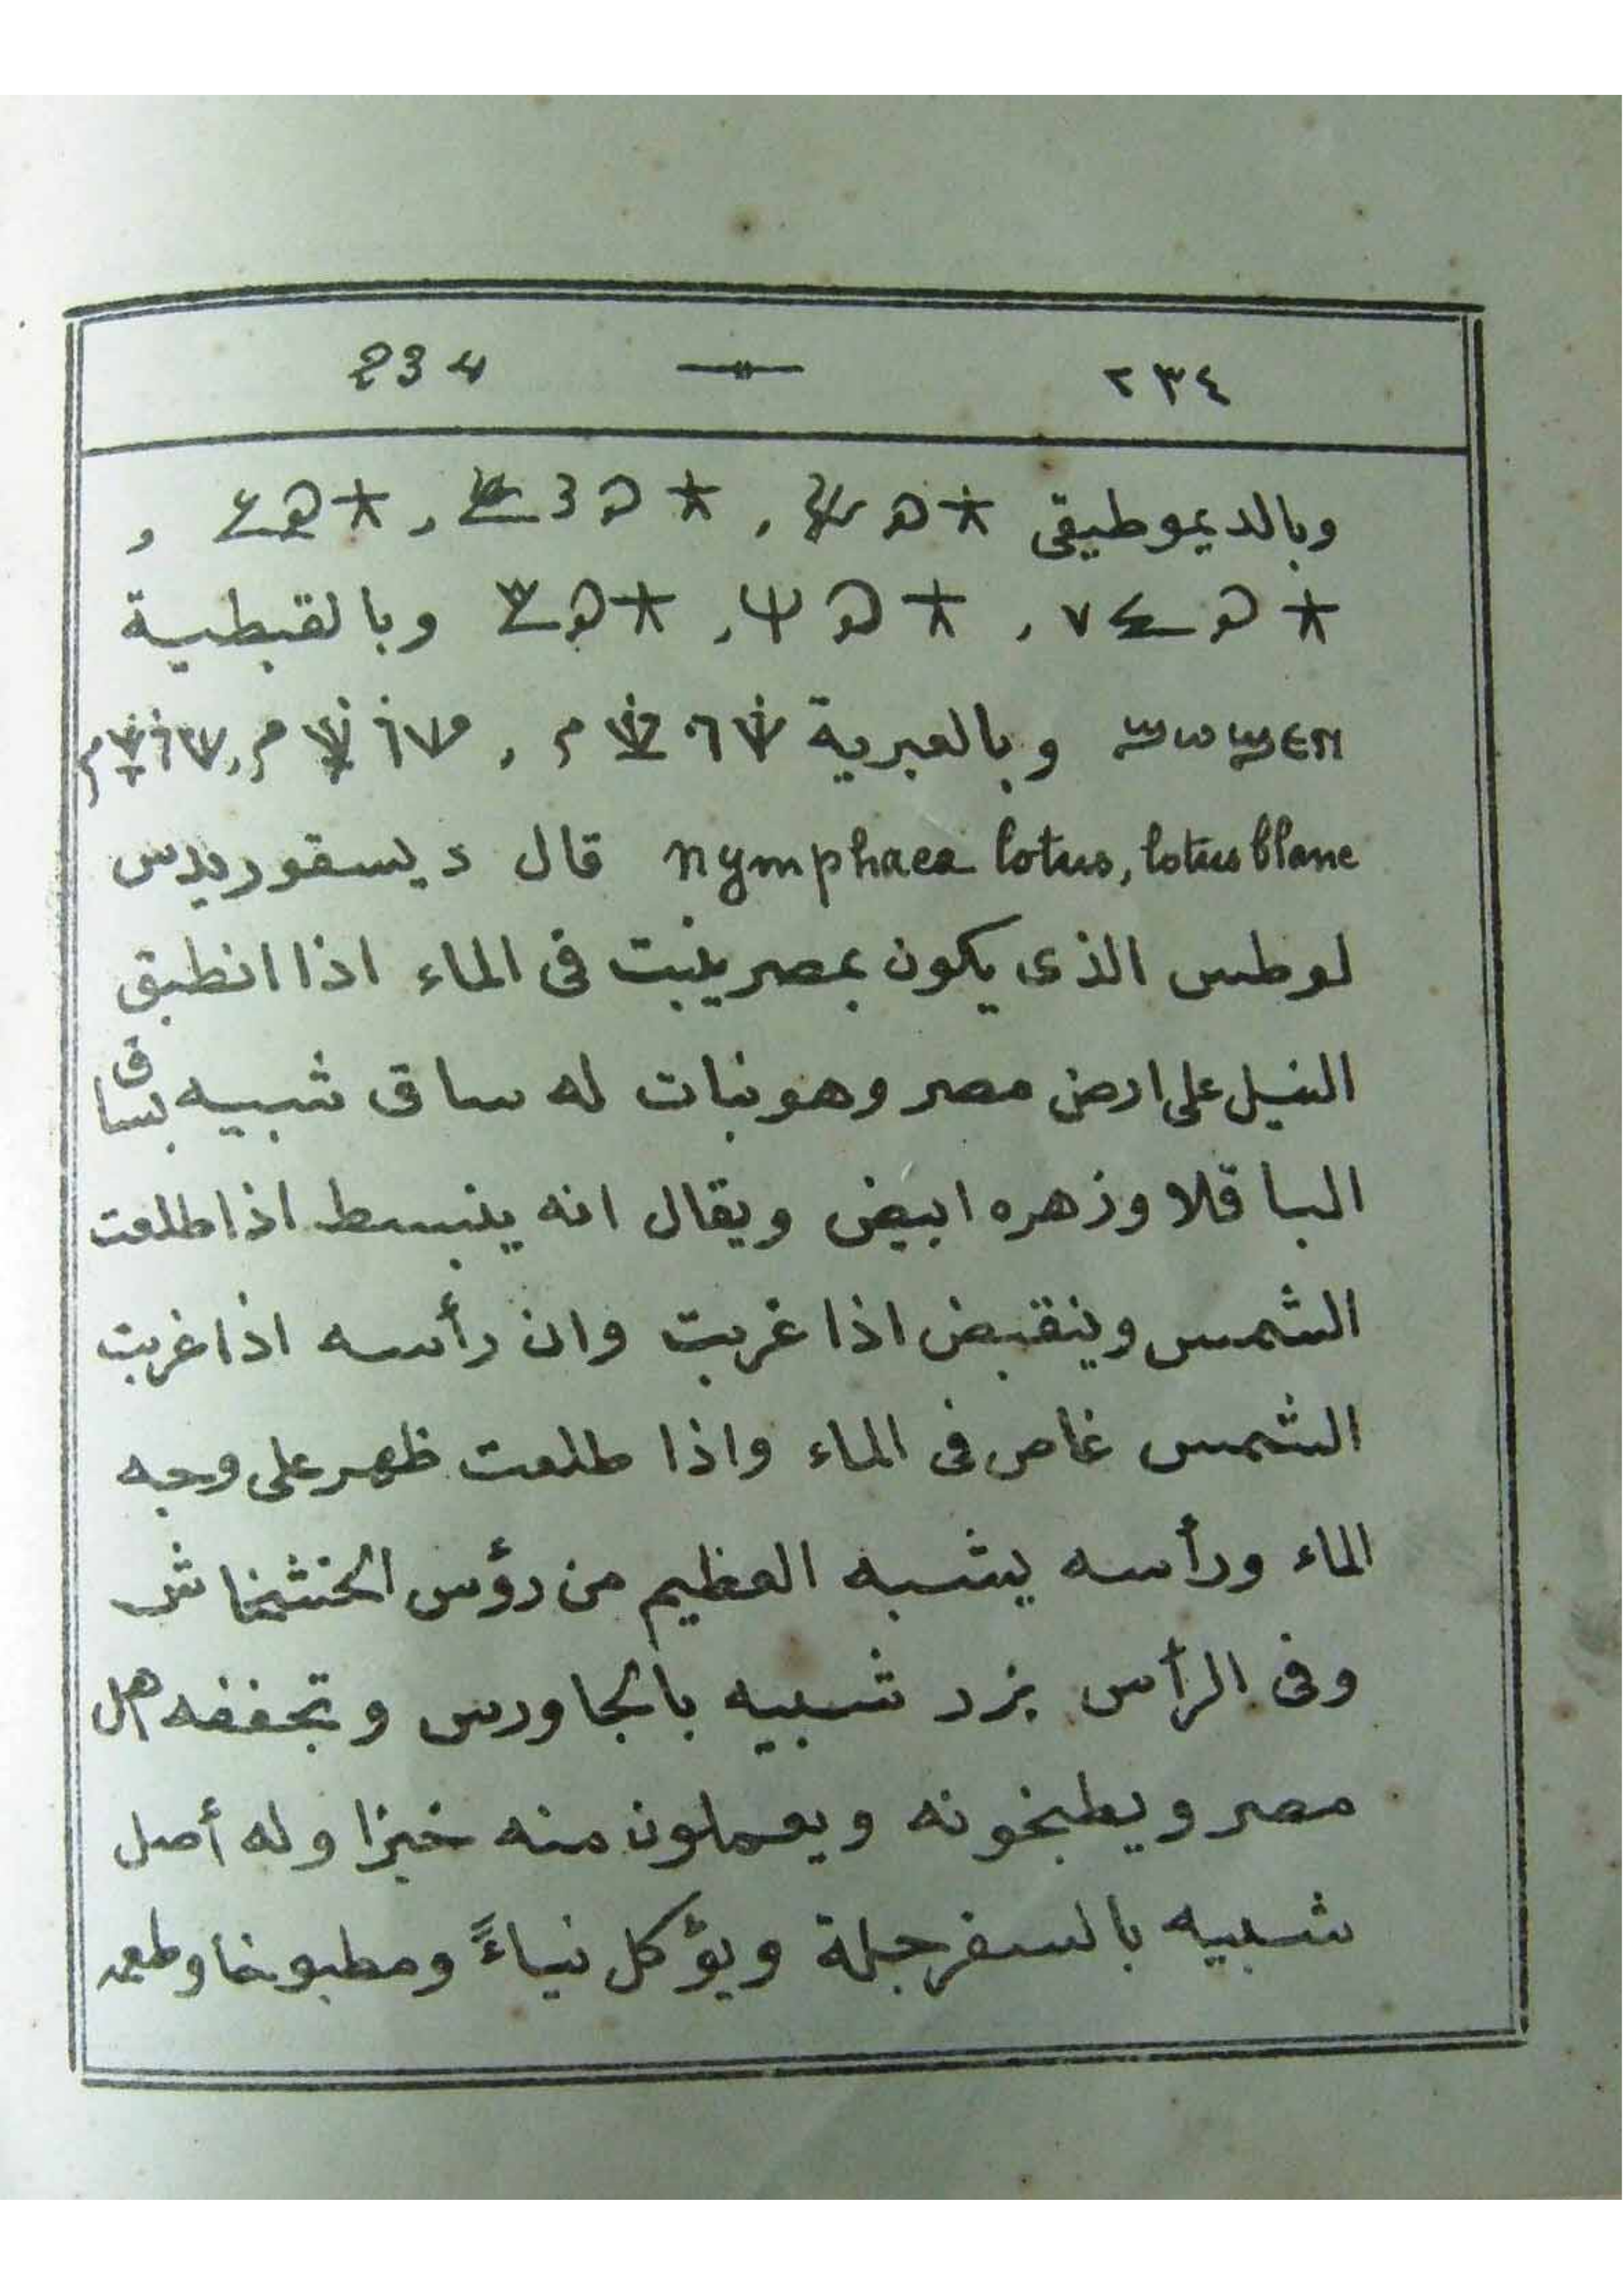 ٢٣٤ — 234
وبالديموطيقى , , ,
, , وبالقبطية
وبالعبرية , ,
nymphaea lotus, lotus blanc قال ديسقوريدس
لوطس الذى يكون بمصر ينبت فى الماء اذا انطبق
النيل على ارض مصر وهو نبات له ساق شبيه بساق
الباقلا وزهره ابيض ويقال انه ينبسط اذا طلعت
الشمس وينقبض اذا غربت وان رأسه اذا غربت
الشمس غاص فى الماء واذا طلعت ظهر على وجه
الماء ورأسه يشبه العظيم من رؤس الخشخاش
وفى الرأس بزر شبيه بالجاورس وتجففه اهل
مصر ويطبخونه ويعملون منه خبزا وله أصل
شبيه بالسفرجلة ويؤكل نياءً ومطبوخا وطعمه